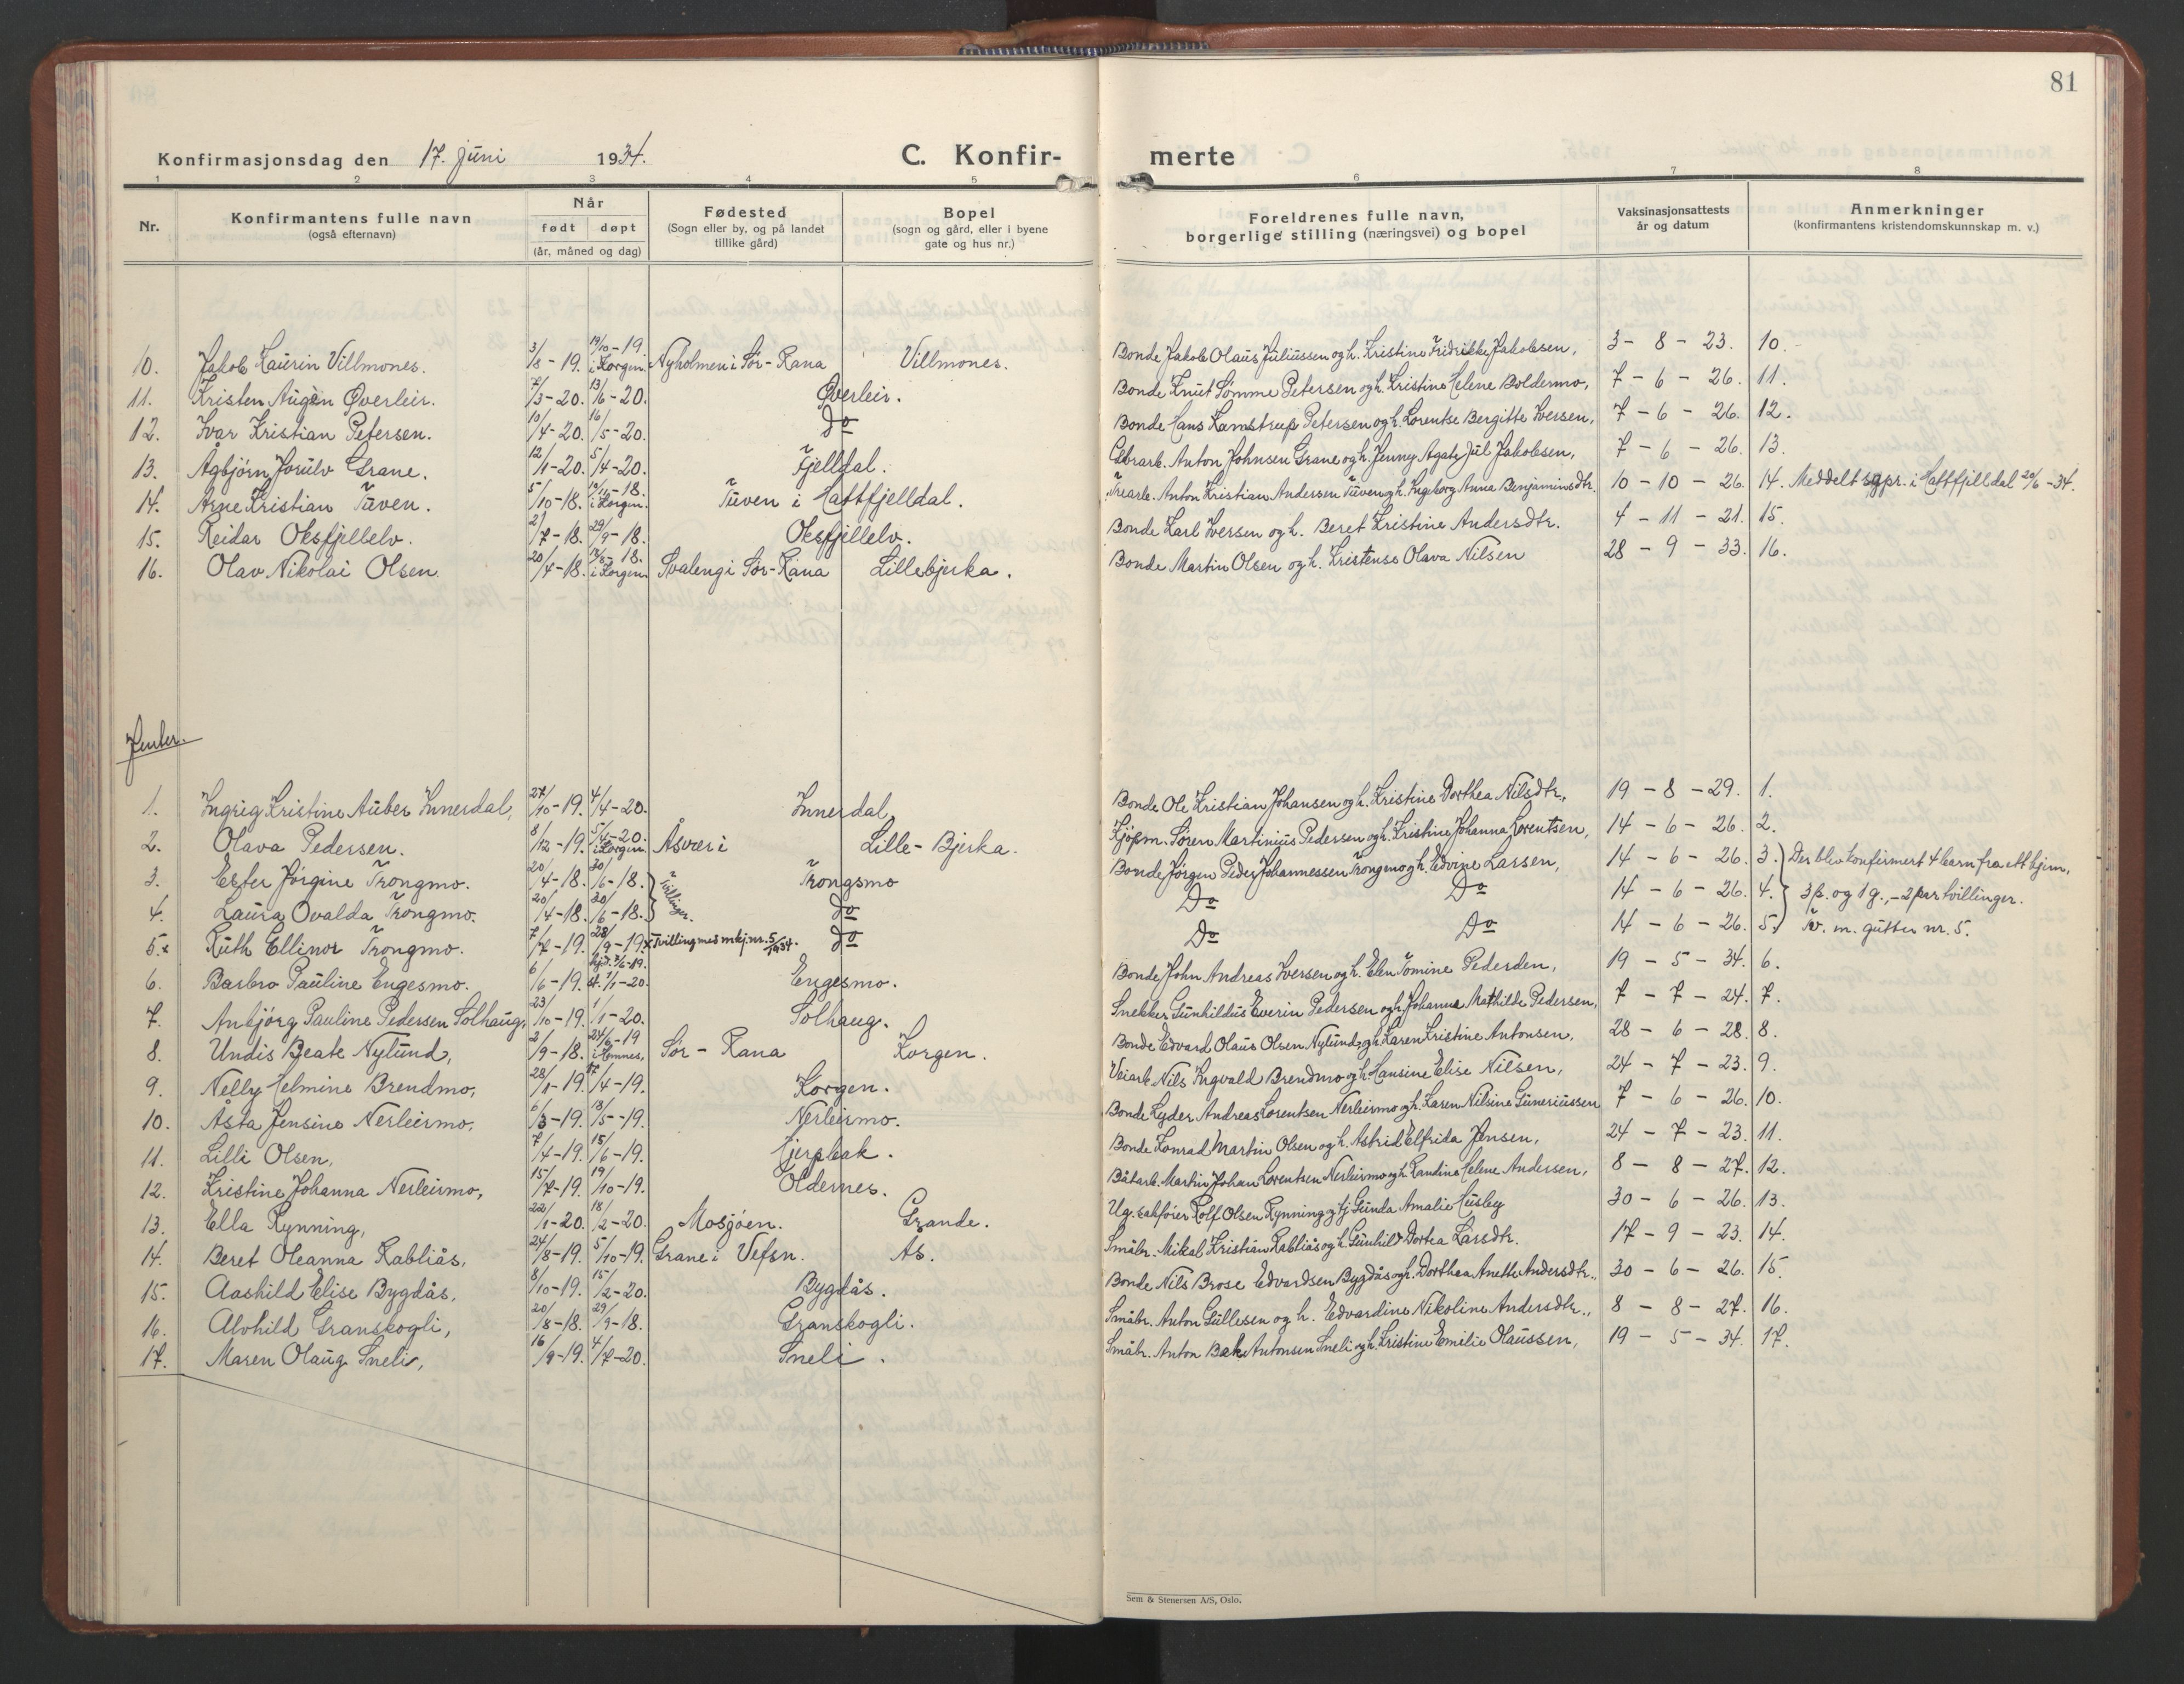 81
Konfirmasjonsdag den 17. juni 1934. C. Konfir- merte
1 2 3 4 5 6 7 8
Nr. Konfirmantens fulle navn (også efternavn) Når født døpt (år, måned og dag) Fødested (Sogn eller by, og på landet tillike gård) Bopel (sogn og gård, eller i byene gate og hus nr.) Foreldrenes fulle navn, borgerlige stilling (næringsvei) og bopel Vaksinasjonsattests år og datum Anmerkninger (konfirmantens kristendomskunnskap m. v.)
10. Jakob Laurin Villmones. 3/8-19. 19/10-19 i Korgen. Nyholmen i Sør-Rana Villmones. Bonde Jakob Olaus Juliussen og h. Kristine Fridrikke Jakobsen, 3-8-23. 10.
11. Kristen Augèn Øverleir. 7/3-20. 13/6-20. Øverleir. Bonde Knut Sømme Petersen og h. Kristine Helene Boldermo, 7-6-26. 11.
12. Ivar Kristian Petersen. 10/4-20. 16/5-20. Do Bonde Hans Kamstrup Petersen og h. Lorentse Bergitte Iversen, 7-6-26. 12.
13. Agbjørn Jorulv Grane. 12/1-20. 5/4-20. Fjelldal. Gbrarb. Anton Johnsen Grane og h. Jenny Agate Jul Jakobsen, 7-6-26. 13.
14. Arne Kristian Tuven. 5/10-18. 10/11-18. i Korgen. Tuven i Hattfjelldal. Trearb. Anton Kristian Andersen Tuven og h. Ingeborg Anna Benjaminsdtr. 10-10-26. 14. Meddelt sgpr. i Hattfjelldal 20/6-34.
15. Reidar Oksfjellelv. 2/7-18. 29/9-18. Oksfjellelv. Bonde Karl Iversen og h. Beret Kristine Andersdtr. 4-11-21. 15.
16. Olav Nikolai Olsen. 20/7-18. i Korgen. Svaleng i Sør-Rana Lillebjerka. Bonde Martin Olsen og h. Kristense Olava Nilsen 28-9-33. 16.
Jenter.
1. Ingrig Kristine Auber Innerdal, 27/10-19. 4/4-20. Innerdal, Bonde Ole Kristian Johansen og h. Kristine Dorthea Nilsdtr., 19-8-29. 1.
2. Olava Pedersen. 8/12-19. 5/4-20. i Korgen. Åsvær i Lille-Bjerka. Kjøpm. Søren Martinius Pedersen og h. Kristine Johanna Lorentsen, 14-6-26. 2.
3. Ester Jørgine Trongmo. 20/4-18. 30/6-18. Tvillinger. Trongsmo Bonde Jørgen Peder Johannessen Trongmo og h. Edvine Larsen, 14-6-26. 3. Der blev konfirmert 4 barn fra ett hjem,
4. Laura Ovalda Trongmo. 20/4-18. 30/6-18. Do Do Do 14-6-26. 4. 3 p. og 1 g., - 2 par tvillinger.
5.x Ruth Ellinor Trongmo. 7/7-19. 28/9-19. x Tvilling med mkj. nr. 5 Do Do Do 14-6-26. 5. Tv. m. gutten nr. 5.
6. Barbro Pauline Engesmo. 6/6-19. hjd. 7/6-19. st. 1/1-20. Engesmo. Bonde John Andreas Iversen og h. Elen Tomine Pedersen, 19-5-34. 6.
7. Anbjørg Pauline Pedersen Solhaug, 23/10-19. 1/1-20. Solhaug. Snekker Gunhildus Everin Pedersen og h. Johanna Mathilde Pedersen, 7-7-24. 7.
8. Undis Beate Nylund, 2/9-18. 24/6-19 i Hemnes, Sør-Rana Korgen. Bonde Edvard Olaus Olsen Nylund og h. Karen Kristine Antonsen, 28-6-28. 8.
9. Nelly Helmine Brendmo, 28/1-19. /4-19. Korgen. Veiarb. Nils Ingvald Brendmo og h. Hansine Elise Nilsen, 24-7-23. 9.
10. Åsta Jensine Nerleirmo, 6/3-19. 18/5-19. Nerleirmo. Bonde Lyder Andreas Lorentsen Nerleirmo og h. Karen Nilsine Guneriussen 7-6-26. 10.
11. Lilli Olsen, 7/4-19. 15/6-19. Hjerpbak. Bonde Konrad Martin Olsen og h. Astrid Elfrida Jensen, 24-7-23. 11.
12. Kristine Johanna Nerleirmo, 15/7-19. 19/10-19. Oldernes. Båtarb. Martin Johan Lorentsen Nerleirmo og h. Randine Helene Andersen, 8-8-27. 12.
13. Ella Rynning, 22/1-20. 18/2-20. Mosjøen. Grande. Ug. sakfører Rolf Olsen Rynning og tj. Gunda Amalie Husby 30-6-26. 13.
14. Beret Oleanna Rabliås, 24/8-19. 5/10-19. Grane i Vefsn. Ås. Småbr. Mikal Kristian Rabliås og h. Gunhild Dortea Larsdtr. 17-9-23. 14.
15. Aashild Elise Bygdås, 8/10-19. 15/2-20. Bygdås. Bonde Nils Brose Edvardsen Bygdås og h. Dorthea Anette Andersdtr., 30-6-26. 15.
16. Alvhild Granskogli, 20/8-18. 29/9-18. Granskogli. Småbr. Anton Gullesen og h. Edvardine Nikoline Andersdtr., 8-8-27. 16.
17. Maren Olaug Sneli, 16/9-19. 4/7-20. Sneli. Småbr. Anton Bak Antonsen Sneli og h. Kristine Emilie Olaussen, 19-5-34. 17.
Sem & Stenersen A/S, Oslo.